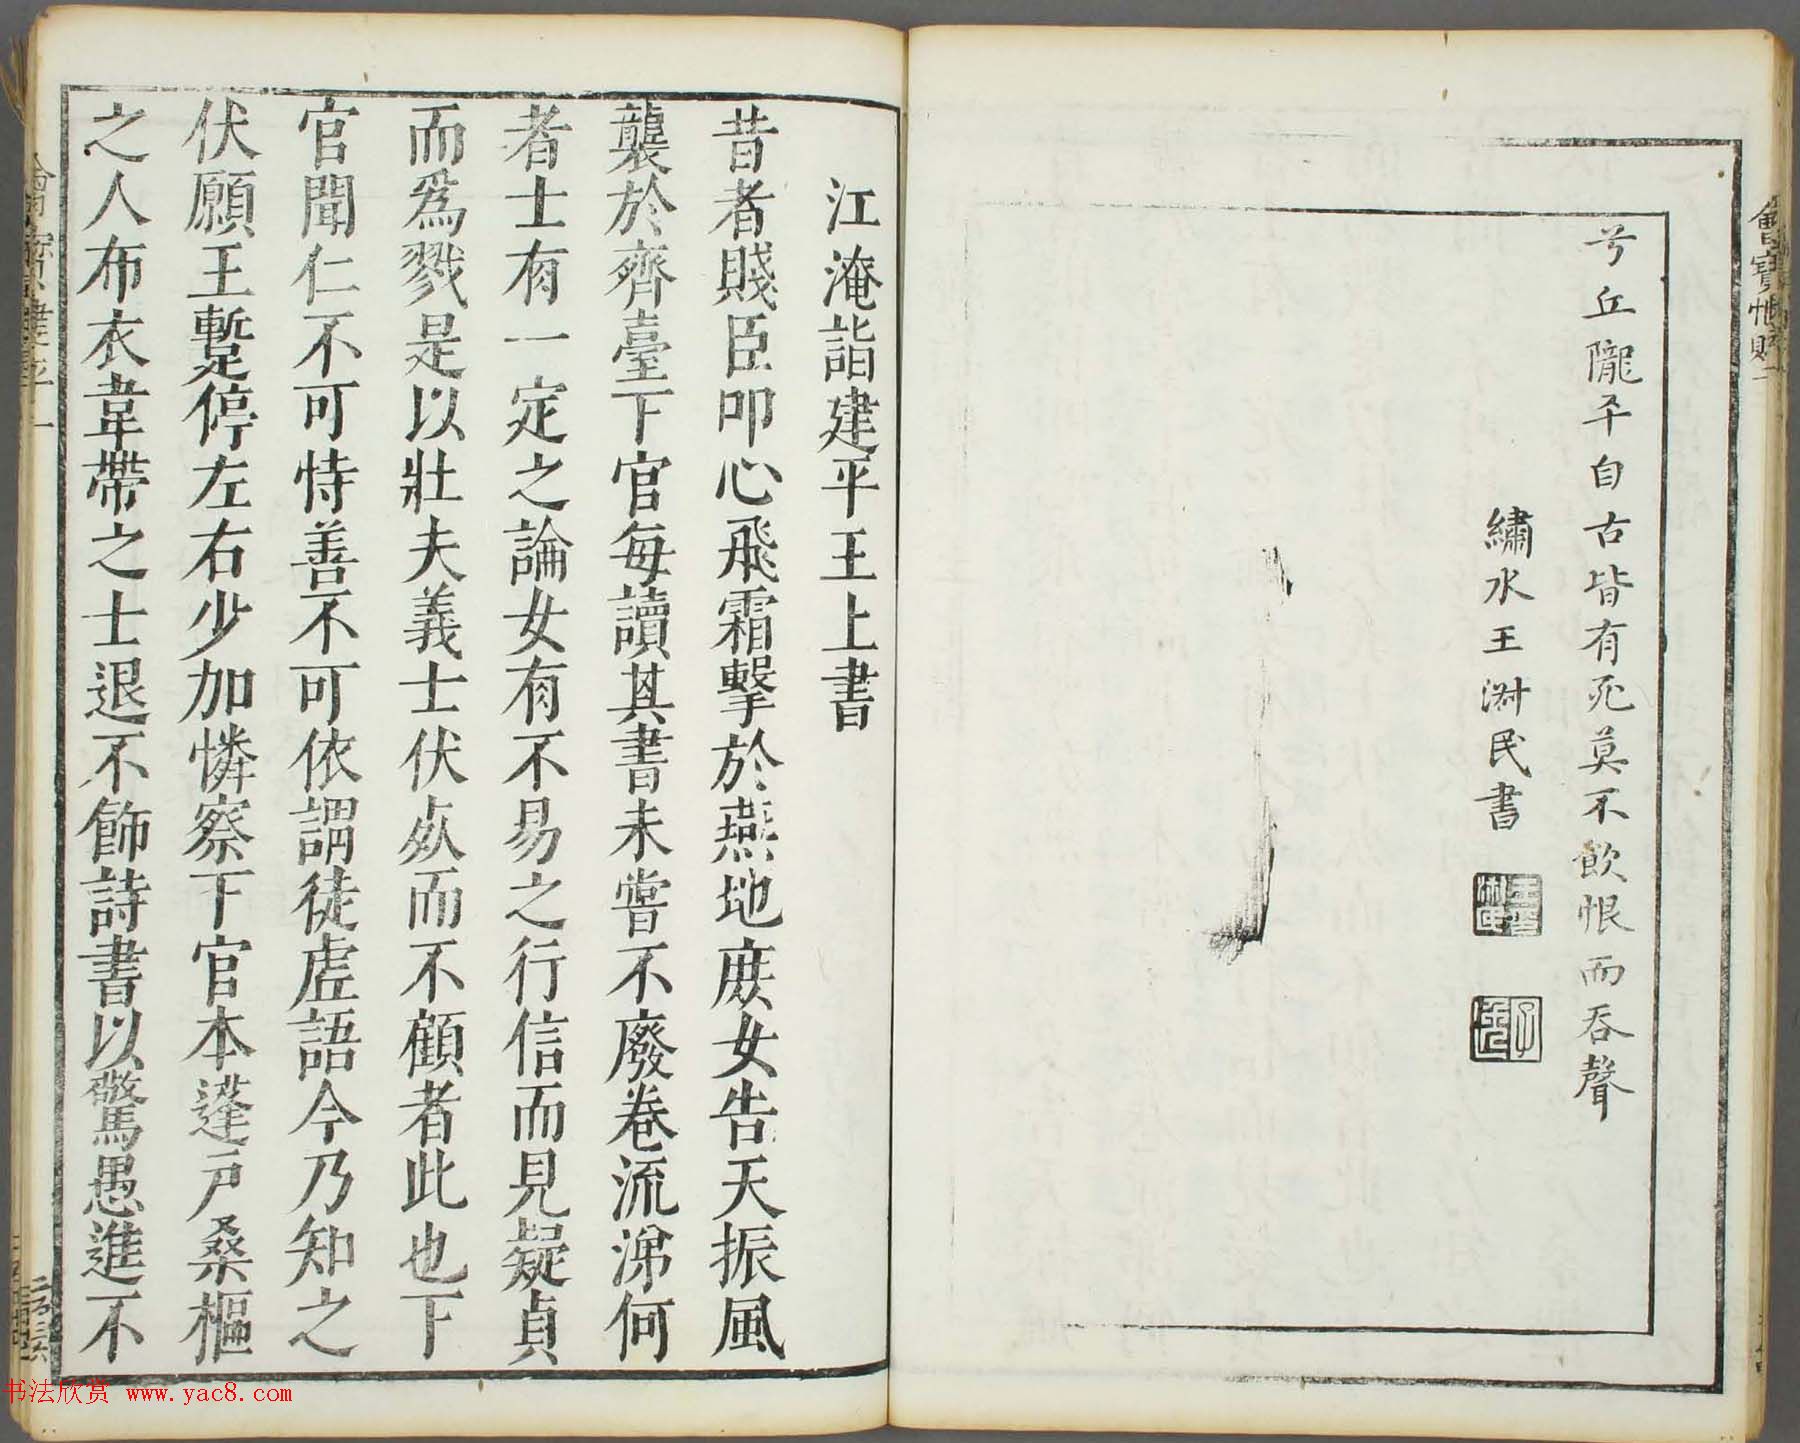 兮丘隴平自古皆有死莫不飲恨而吞聲
繡水王淛民書
江淹詣建平王上書
昔者賤臣叩心飛霜擊於燕地庶女告天振風
襲於齊臺下官每讀其書未嘗不廢卷流涕何
者士有一定之論女有不易之行信而見疑貞
而爲戮是以壯夫義士伏死而不顧者此也下
官聞仁不可恃善不可依謂徒虛語今乃知之
伏願王蹔停左右少加憐察下官本蓬戶桑樞
之人布衣韋帶之士退不飾詩書以驚愚進不
书法欣赏 www.yac8.com